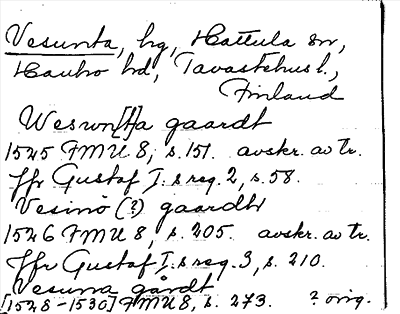 Vesunta, hg, Hattula sn,
Hauho hd, Tavastehus l.,
Finland
Weswn[t]a gaardt
1525 FMU 8, s. 151. avskr. av tr.
Jfr Gustaf I:s reg. 2, s. 58.
Vesinö (?) gaardh
1526 FMU 8, s. 205. avskr. av tr.
Jfr Gustaf I:s reg. 3, s. 210.
Vesunna gårdt
[1528-1530] FMU 8, s. 273. ? orig.